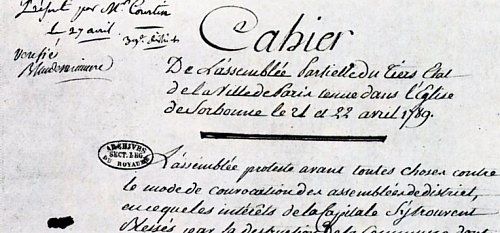 Déposé par Mr Courtin
le 27 avril.
39e district
vérifié
Cahier
De L'assemblée Partielle du Tiers Etat
de la Ville de Paris tenue dans l'Eglise
de Sorbonne le 21 et 22 avril 1789.
ARCHIVES
SECT. LEG.
DU ROYAUME
L'assemblée proteste avant toutes choses contre
le mode de convocation des assemblées de district,
en ce que les intérêts de la Capitale s'y trouvent
blessés par la destruction de la Commune dont